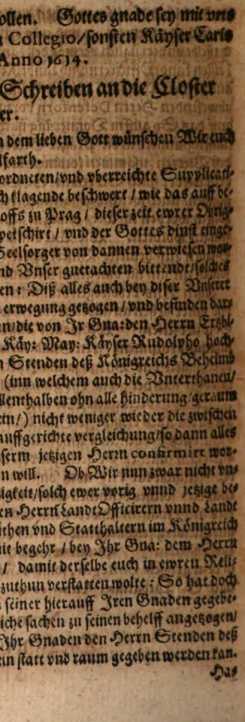 ollen. Gottes gnade sey mit vns
Collegio/sonsten Käyser Carls
Anno 1614.
Schreiben an die Closter
er.
dem lieben Gott wünschen Wir euch
lfarth.
ordneten/vnd vberreichte Supplicati-
ch klagende beschwert / wie das auff be-
offs zu Prag / dieser zeit ewrer Obrig-
petschirt / vnd der Gottes dinst einge-
Seelsorger von dannen verwiesen wor-
nd Vnser guetachten bittende/solches
en: Diß alles auch bey diser Vnserer
erwegung gezogen / vnd befinden dar-
n/die von Jr Gna:den Herrn Ertzbi-
Käy: May: Käyser Rudolpho hoch-
n Stenden deß Königreichs Beheimb
(inn welchem auch die Vnterthanen/
llenthalben ohn alle hinderung/geraum
en/) nicht weniger wieder die zwischen
auffgerichte vergleichung/so dann alles
serm jetzigen Herrn confirmirt wor-
n will. Ob Wir nun zwar nicht vn-
igkeit/solch ewer vorig vnnd jetzige be-
en Herrn Land Officirern vnnd Land
then vnd Statthaltern im Königreich
mit begehr / bey Ihr Gna: dem Herrn
/ damit derselbe euch in ewren Reli-
zuthun verstatten wolte: So hat doch
seiner hierauff Iren Gnaden gegebe-
liche sachen zu seinen behelff angezogen/
Ihr Gnaden den Herrn Stenden deß
ein statt vnd raum gegeben werden kan.
Das